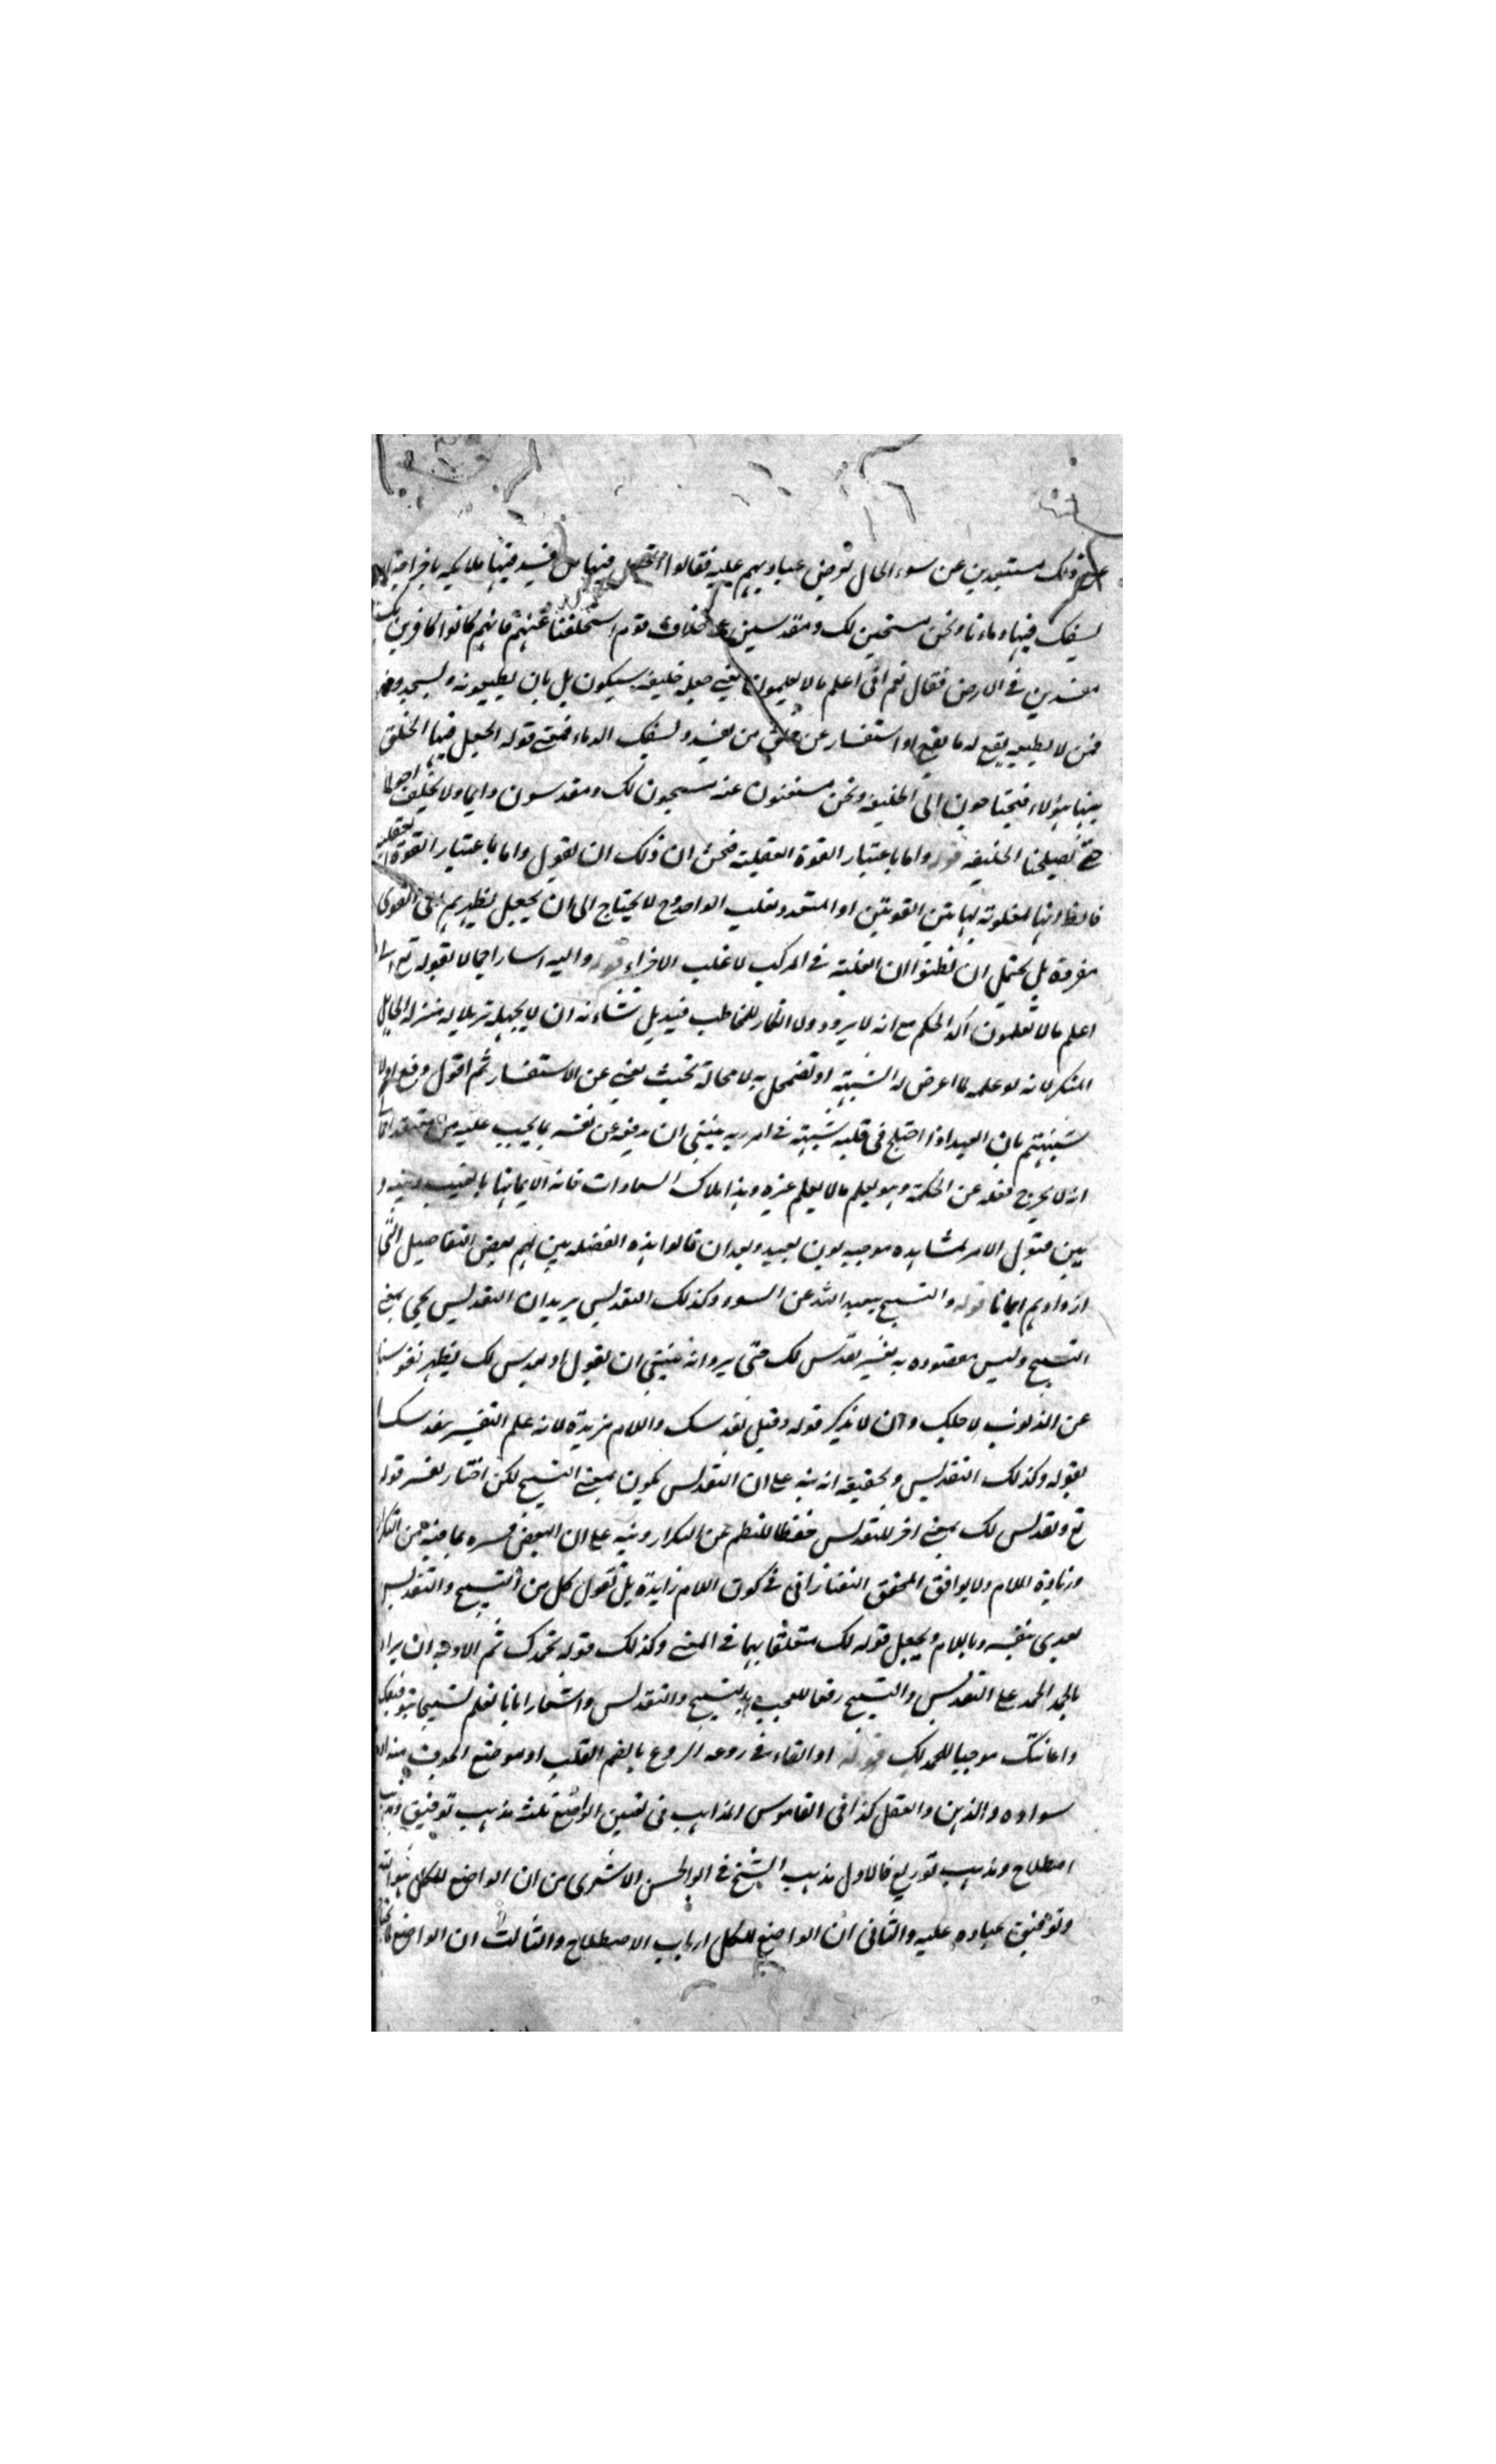 ذلك مستبعدين عن سوء الحال بعرض عباديهم عليه فقالوا اتجعل فيها من يفسد فيها
يسفك فيها دماءنا ونحن مسبحين لك ومقدسين على خلاف قوم استخلفتنا عنهم فانهم كانوا كافرين
مفسدين في الارض فقال نعم اني اعلم ما لا تعلمون يعني جعله خليفة سيكون بل بان يطيعونه ويسجدونه
فمن لا يطيعه يقع له ما يقع او استفسار عن خلق من يفسد ويسفك الدماء فمعنى قوله اتجعل فيها اتخلق
فيها هؤلاء فيحتاجون الى الخليفة ونحن مستغنون عنه مسبحون لك ومقدسون دائما ولا تخليف
حتى يصلحنا الخليفة قوله واما باعتبار القوة العقلية فنحن ان ذلك ان نقول واما باعتبار القوة العقلية
فالظ انها مغلوبة بهاتين القوتين او المتعدد يغلب الواحد وح لا يحتاج الى ان يجعل نظرهم الى القوى
مفردة بل يحتمل ان يظنوا ان الغلبة في المركب لاغلب الاجزاء قوله واليه اشار اجمالا بقوله تع اني
اعلم ما لا تعلمون اكد الحكم مع انه لا يردد ولا انكار للمخاطب فيه بل شانه ان لا يجهله تنزيلا له منزلة الجاهل
المنكر لانه لو علمه لما اعرض له الشبهة او تضمحل به لا محالة بحيث يغني عن الاستفسار ثم اقول وقع اولا
شبهتهم بان العبد اذا اختلج في قلبه شبهة في امر ربه ينبغي ان يدفعه عن نفسه بما يجب عليه من
انه لا يخرج فعله عن الحكمة وهو يعلم ما لا يعلم غيره وهذا ملاك السعادات فانه الايمان بالغيب وبينه و
بين قبول الامر لمشاهدة موجبه بون بعيد وبعد ان قالوا بهذه الفضلة بين لهم بعض التفاصيل التي
ازدادهم ايمانا قوله والتسبيح تبعيد الله عن السوء وكذلك التقديس يريد ان التقديس يجئ بمعنى
التسبيح وليس مقصوده به تفسير نقدس لك حتى يرد انه ينبغي ان يقول او نقدس لك نطهر نفوسنا
عن الذنوب لاجلك وان لا يذكر قوله وقيل نقدسك واللام مزيدة لانه علم التفسير بنقدسك
بقوله وكذلك التقديس وتحقيقه انه نبه على ان التقديس يكون بمعنى التسبيح لكن اختار تفسير قوله
تع ونقدس لك بمعنى اخر للتقديس حفظا للنظم عن التكرار ونبه على ان البعض فسره بما فيه من التكرار
وزيادة اللام ولا يوافق المحقق التفتازاني في كون اللام زائدة بل نقول كل من التسبيح والتقديس
يعدى بنفسه وباللام ويجعل قوله لك متعلقا بهما في المعنى وكذلك قوله بحمدك ثم الاوجه ان يراد
بالحمد الحمد على التقديس والتسبيح رفعا للعجب بالتسبيح والتقديس واشعارا بانا نعلم تسبيحنا بتوفيقك
واعانتك موجبا للحمد لك قوله او القاء في روعه الروع بالضم القلب او موضع الخوف منه او
سواده والذهن والعقل كذا في القاموس المذاهب في تعيين الواضع ثلث مذهب توقيف ومذهب
اصطلاح ومذهب توزيع فالاول مذهب الشيخ ابو الحسن الاشعري من ان الواضع للكل هو الله
وتوقيف عباده عليه والثاني ان الواضع للكل ارباب الاصطلاح والثالث ان الواضع